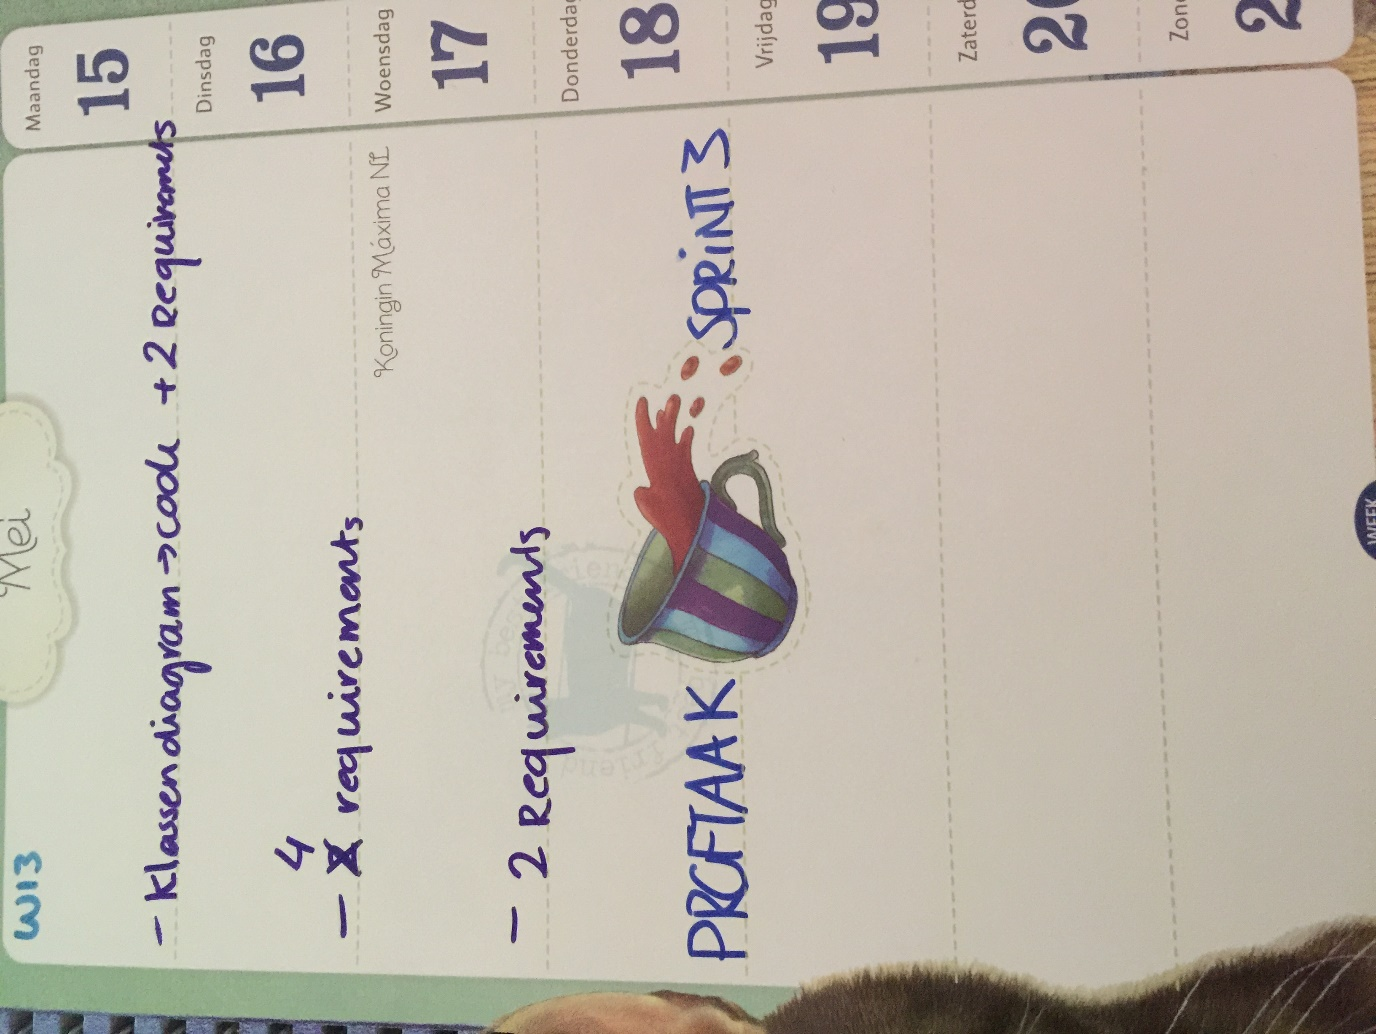 Mei
W13
Maandag
15
- Klassendiagram → code + 2 Requiremets
Dinsdag
16
- 4 requirements
Woensdag
17
Koningin Máxima NL
- 2 Requirements
Donderdag
18
PROFTAAK SPRINT 3
Vrijdag
19
Zaterd
2
Zon
2
WEEK